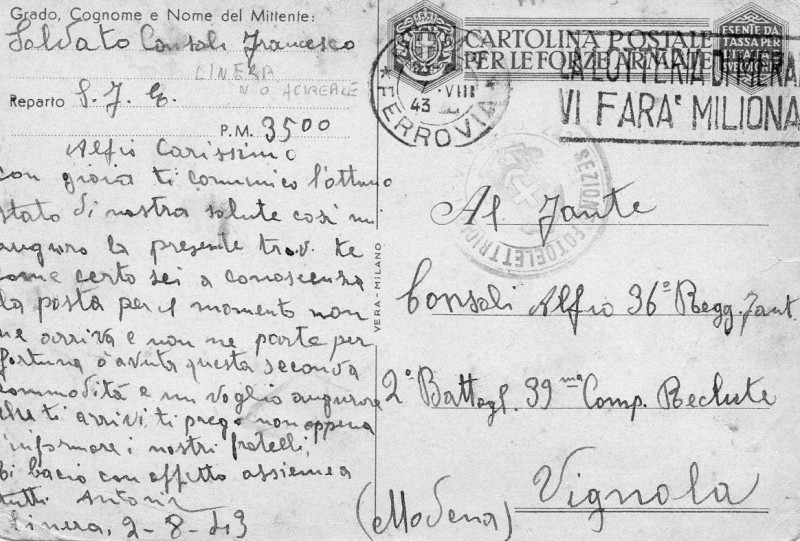 Grado, Cognome e Nome del Mittente:
Soldato Consoli Francesco
LINERA
ACIREALE
Reparto S. F. E.
P.M. 3500
Alfio Carissimo
con gioia ti comunico l'ottimo
stato di nostra salute così mi
auguro la presente trov. te
come certo sei a conoscenza
la posta per il momento non
ne arriva e non ne parte per
fortuna ò avuta questa seconda
commodità e mi voglio augurare
che ti arrivi, ti prego non appena
informare i nostri fratelli,
ti bacio con affetto assieme a
tutti
Linera, 2-8-43
VERA - MILANO
CARTOLINA POSTALE
PER LE FORZE ARMATE
ESENTE DA
TASSA PER
FERROVIA
VIII
43
LA LOTTERIA DI MERA
VI FARA' MILIONA
SEZIONE FOTOELETTRIC
Al Fante
Consoli Alfio 36º Regg. Fant.
2º Battagl. 39ma Comp. Reclute
Vignola
(Modena)